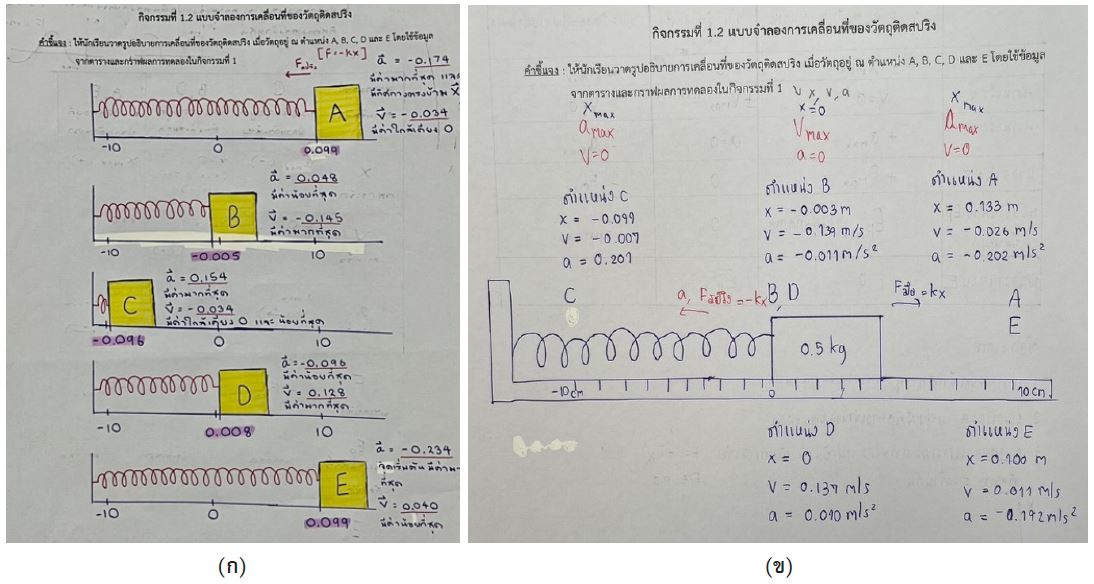 กิจกรรมที่ 1.2 แบบจำลองการเคลื่อนที่ของวัตถุติดสปริง
คำชี้แจง : ให้นักเรียนวาดรูปอธิบายการเคลื่อนที่ของวัตถุติดสปริง เมื่อวัตถุอยู่ ณ ตำแหน่ง A, B, C, D และ E โดยใช้ข้อมูล
จากตารางและกราฟผลการทดลองในกิจกรรมที่ 1
[F=-kx]
a = -0.174
มีค่ามากที่สุด และ
มีทิศทางตรงข้าม x
v = -0.034
มีค่าใกล้เคียง 0
A
-10 0 0.099
a = 0.048
มีค่าน้อยที่สุด
v = -0.145
มีค่ามากที่สุด
B
-10 -0.005 10
a = 0.154
มีค่ามากที่สุด
v = -0.034
มีค่าใกล้เคียง 0 และ น้อยที่สุด
C
-0.096 0 10
a = -0.096
มีค่าน้อยที่สุด
v = 0.128
มีค่ามากที่สุด
D
-10 0.008 10
a = -0.234
จุดเริ่มต้น มีค่ามาก
ที่สุด
v = 0.040
มีค่าน้อยที่สุด
E
-10 0 0.099
(ก)
กิจกรรมที่ 1.2 แบบจำลองการเคลื่อนที่ของวัตถุติดสปริง
คำชี้แจง : ให้นักเรียนวาดรูปอธิบายการเคลื่อนที่ของวัตถุติดสปริง เมื่อวัตถุอยู่ ณ ตำแหน่ง A, B, C, D และ E โดยใช้ข้อมูล
จากตารางและกราฟผลการทดลองในกิจกรรมที่ 1 x, v, a
x max x=0 x max
a max v max a max
v=0 a=0 v=0
ตำแหน่ง C
x = -0.099
v = -0.007
a = 0.201
ตำแหน่ง B
x = -0.003 m
v = -0.139 m/s
a = -0.011 m/s²
ตำแหน่ง A
x = 0.133 m
v = -0.026 m/s
a = -0.202 m/s²
C a, Fสปริง=-kx B, D Fมือ=kx A
E
0.5 kg
-10 cm 0 10 cm
ตำแหน่ง D
x = 0
v = 0.137 m/s
a = 0.010 m/s²
ตำแหน่ง E
x = 0.100 m
v = 0.011 m/s
a = -0.192 m/s²
(ข)